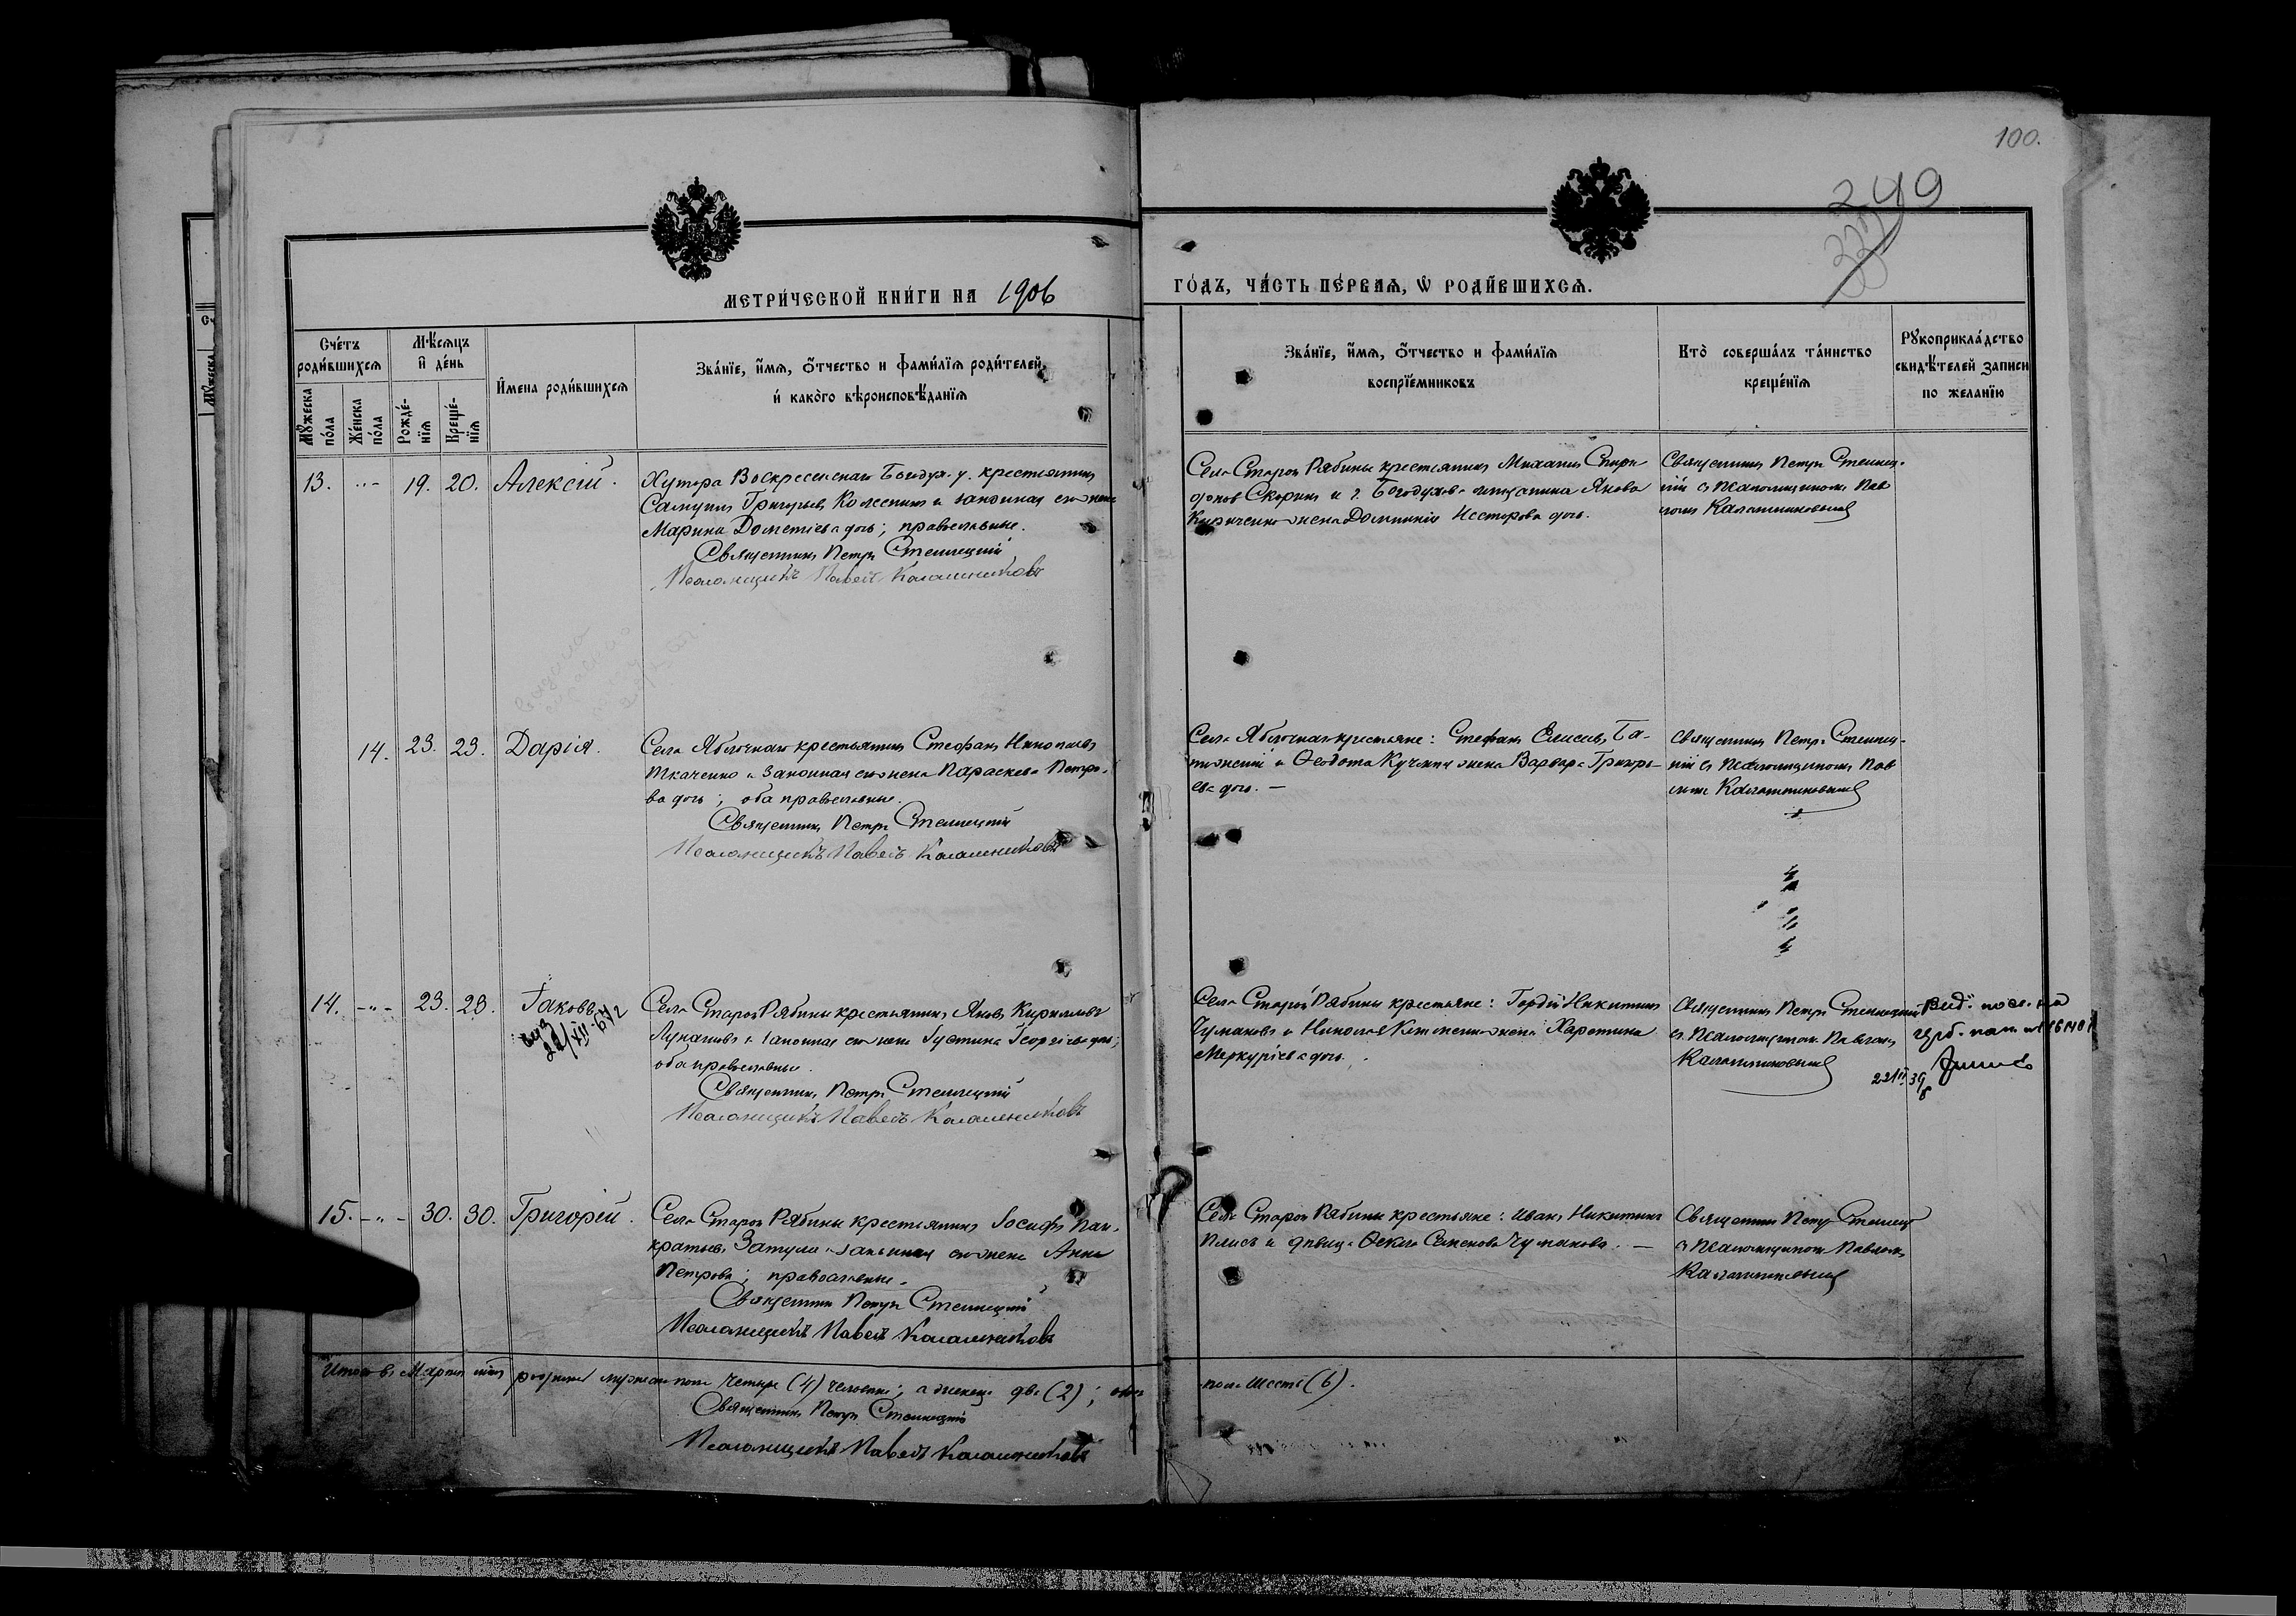 100.
249
МЕТРИ́ЧЕСКОЙ КНИ́ГИ НА 1906
ГО́ДЪ, ЧА́СТЬ ПЕ́РВАЯ, Ѡ РОДИ́ВШИХСЯ.
Сче́тъ
роди́вшихся
Мꙋ́жеска
по́ла
Же́нска
по́ла
Мѣ́сяцъ
и҆ де́нь
Рожде́-
нїя
Креще́-
нїя
И҆мена роди́вшихся
Зва́нїе, и҆́мя, ѻ҆́тчество и фами́лїя роди́телей,
и҆ како́го вѣроисповѣ́данїя
Зва́нїе, и҆́мя, ѻ҆́тчество и фами́лїя
воспрїе́мниковъ
Кто̀ соверша́лъ та́инство
креще́нїя
Рꙋкоприкла́дство
свидѣ́телей записи
по желанїю
13. -"- 19. 20. Алексій.
Хутора Воскресенскаго Богодух. у. крестьянинъ
Самуилъ Григорьевъ Колесникъ и законная его жена
Марина Дометіева дочь; православные.
Священникъ Петръ Стеллецкій
Псаломщикъ Павелъ Калашниковъ
Села Старой Рябины крестьянинъ Михаилъ Спири-
доновъ Скорикъ и г. Богодухова мещанина Якова
Кириченко жена Домникія Несторова дочь.
Священникъ Петръ Стеллец-
кій съ псаломщикомъ Пав
ломъ Калашниковымъ
14. 23. 23. Дарія.
Села Яблочнаго крестьянинъ Стефанъ Николаевъ
Ткаченко и законная его жена Параскева Петро-
ва дочь; оба православные.
Священникъ Петръ Стеллецкій
Псаломщикъ Павелъ Калашниковъ
Села Яблочнаго крестьяне: Стефанъ Елисеевъ
и Ѳеодота жена Варвара Григорь-
ева дочь. —
Священникъ Петръ Стеллец-
кій съ псаломщикомъ Пав
ломъ Калашниковымъ
14. -"- 23. 23. Іаковъ.
22/XII-67
Села Старой Рябины крестьянинъ Яковъ Кирилловъ
и законная его жена Іустина Георгіева дочь;
оба православные.
Священникъ Петръ Стеллецкій
Псаломщикъ Павелъ Калашниковъ
Села Старой Рябины крестьяне: Гордій Никитинъ
Чумаковъ и Николая жена Харитина
Меркуріева дочь.
Священникъ Петръ Стеллецкій
съ псаломщикомъ Павломъ
Калашниковымъ
15. -"- 30. 30. Григорій.
Села Старой Рябины крестьянинъ Іосифъ Пан-
кратьевъ Затула и законная его жена Анна
Петрова; православные.
Священникъ Петръ Стеллецкій
Псаломщикъ Павелъ Калашниковъ
Села Старой Рябины крестьяне: Иванъ Никитинъ
Плисъ и девица Ѳекла Семенова Чумакова. —
Священникъ Петръ Стеллец
съ псаломщикомъ Павломъ
Калашниковымъ
Итого въ Мартѣ родилось мужска пола четыре (4) человека; а женска две (2); обоего
пола шесть (6).
Священникъ Петръ Стеллецкій
Псаломщикъ Павелъ Калашниковъ